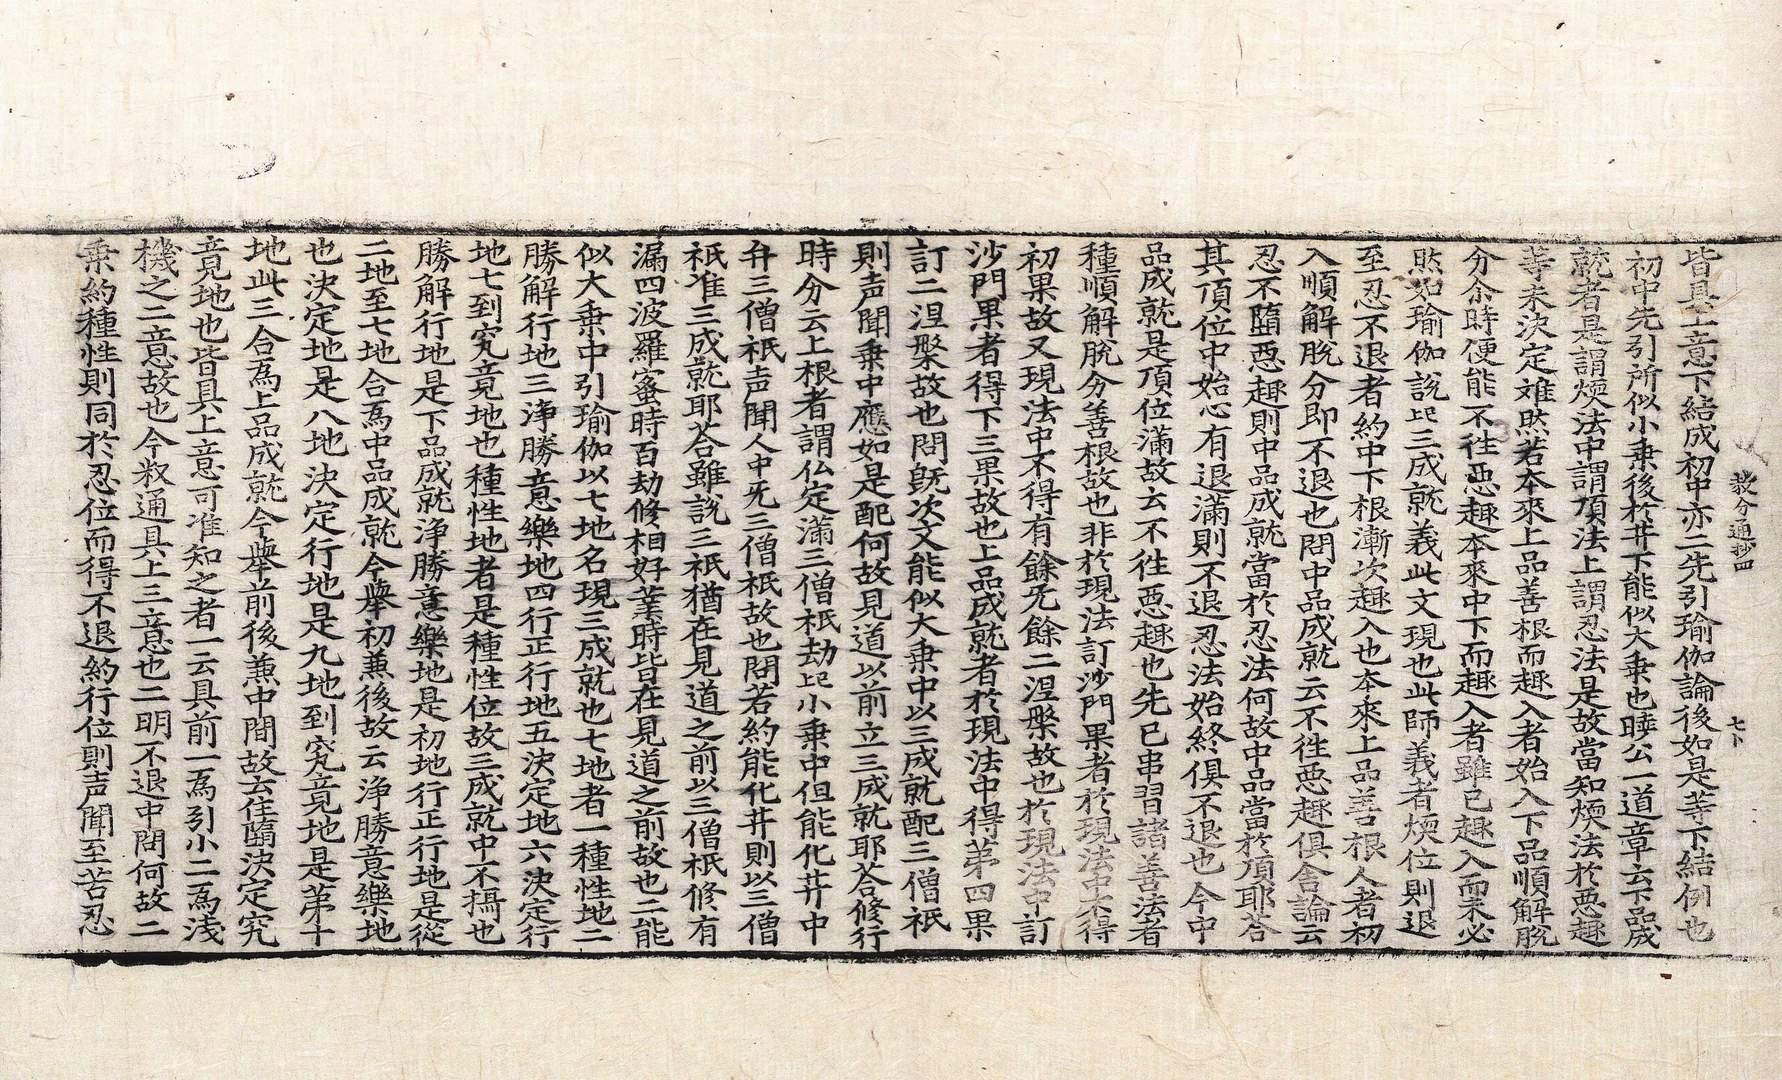 教分通抄四 七卜
皆具上意下結成初中亦二先引瑜伽論後如是等下結例也
初中先引所似小乗後扵井下能似大乗也曉公一道章云下品成
就者是謂煗法中謂頂法上謂忍法是故當知煗法扵悪趣
等未決定难然若本来上品善根而趣入者始入下品順解脫
分余時便能不徃悪趣本来中下而趣入者雖已趣入而未必
然如瑜伽說三成就義此文現也此師義者煗位則退
至忍不退者約中下根漸次趣入也本来上品善根人者初
入順解脫分即不退也問中品成就云不徃悪趣俱舍論云
忍不墮悪趣則中品成就當扵忍法何故中品當扵頂耶荅
其頂位中始心有退滿則不退忍法始終俱不退也今中
品成就是頂位滿故云不徃悪趣也先已串習諸善法者
種順解脫分善根故也非扵現法訂沙門果者扵現法中不得
初果故又現法中不得有餘旡餘二涅槃故也扵現法中訂
沙門果者得下三果故也上品成就者扵現法中得苐四果
訂二涅槃故也問既次文能似大乗中以三成就配三僧祇
則声聞乗中應如是配何故見道以前立三成就耶荅修行
時分云上根者謂仏定滿三僧祇劫小乗中但能化井中
弁三僧祇声聞人中旡三僧祇故也問若約能化井則以三僧
祇准三成就耶荅雖說三祇猶在見道之前以三僧祇修有
漏四波羅蜜時百劫修相好業時皆在見道之前故也二能
似大乗中引瑜伽以七地名現三成就也七地者一種性地二
勝解行地三淨勝意樂地四行正行地五決定地六決定行
地七到究竟地也種性地者是種性位故三成就中不攝也
勝解行地是下品成就淨勝意樂地是初地行正行地是從
二地至七地合為中品成就今舉初兼後故云淨勝意樂地
也決定地是八地決定行地是九地到究竟地是苐十
地此三合為上品成就今舉前後兼中間故云住墮決定究
竟地也皆具上意可准知之者一云具前一為引小二為淺
機之二意故也今叙通具上三意也二明不退中問何故二
乗約種性則同扵忍位而得不退約行位則声聞至苦忍